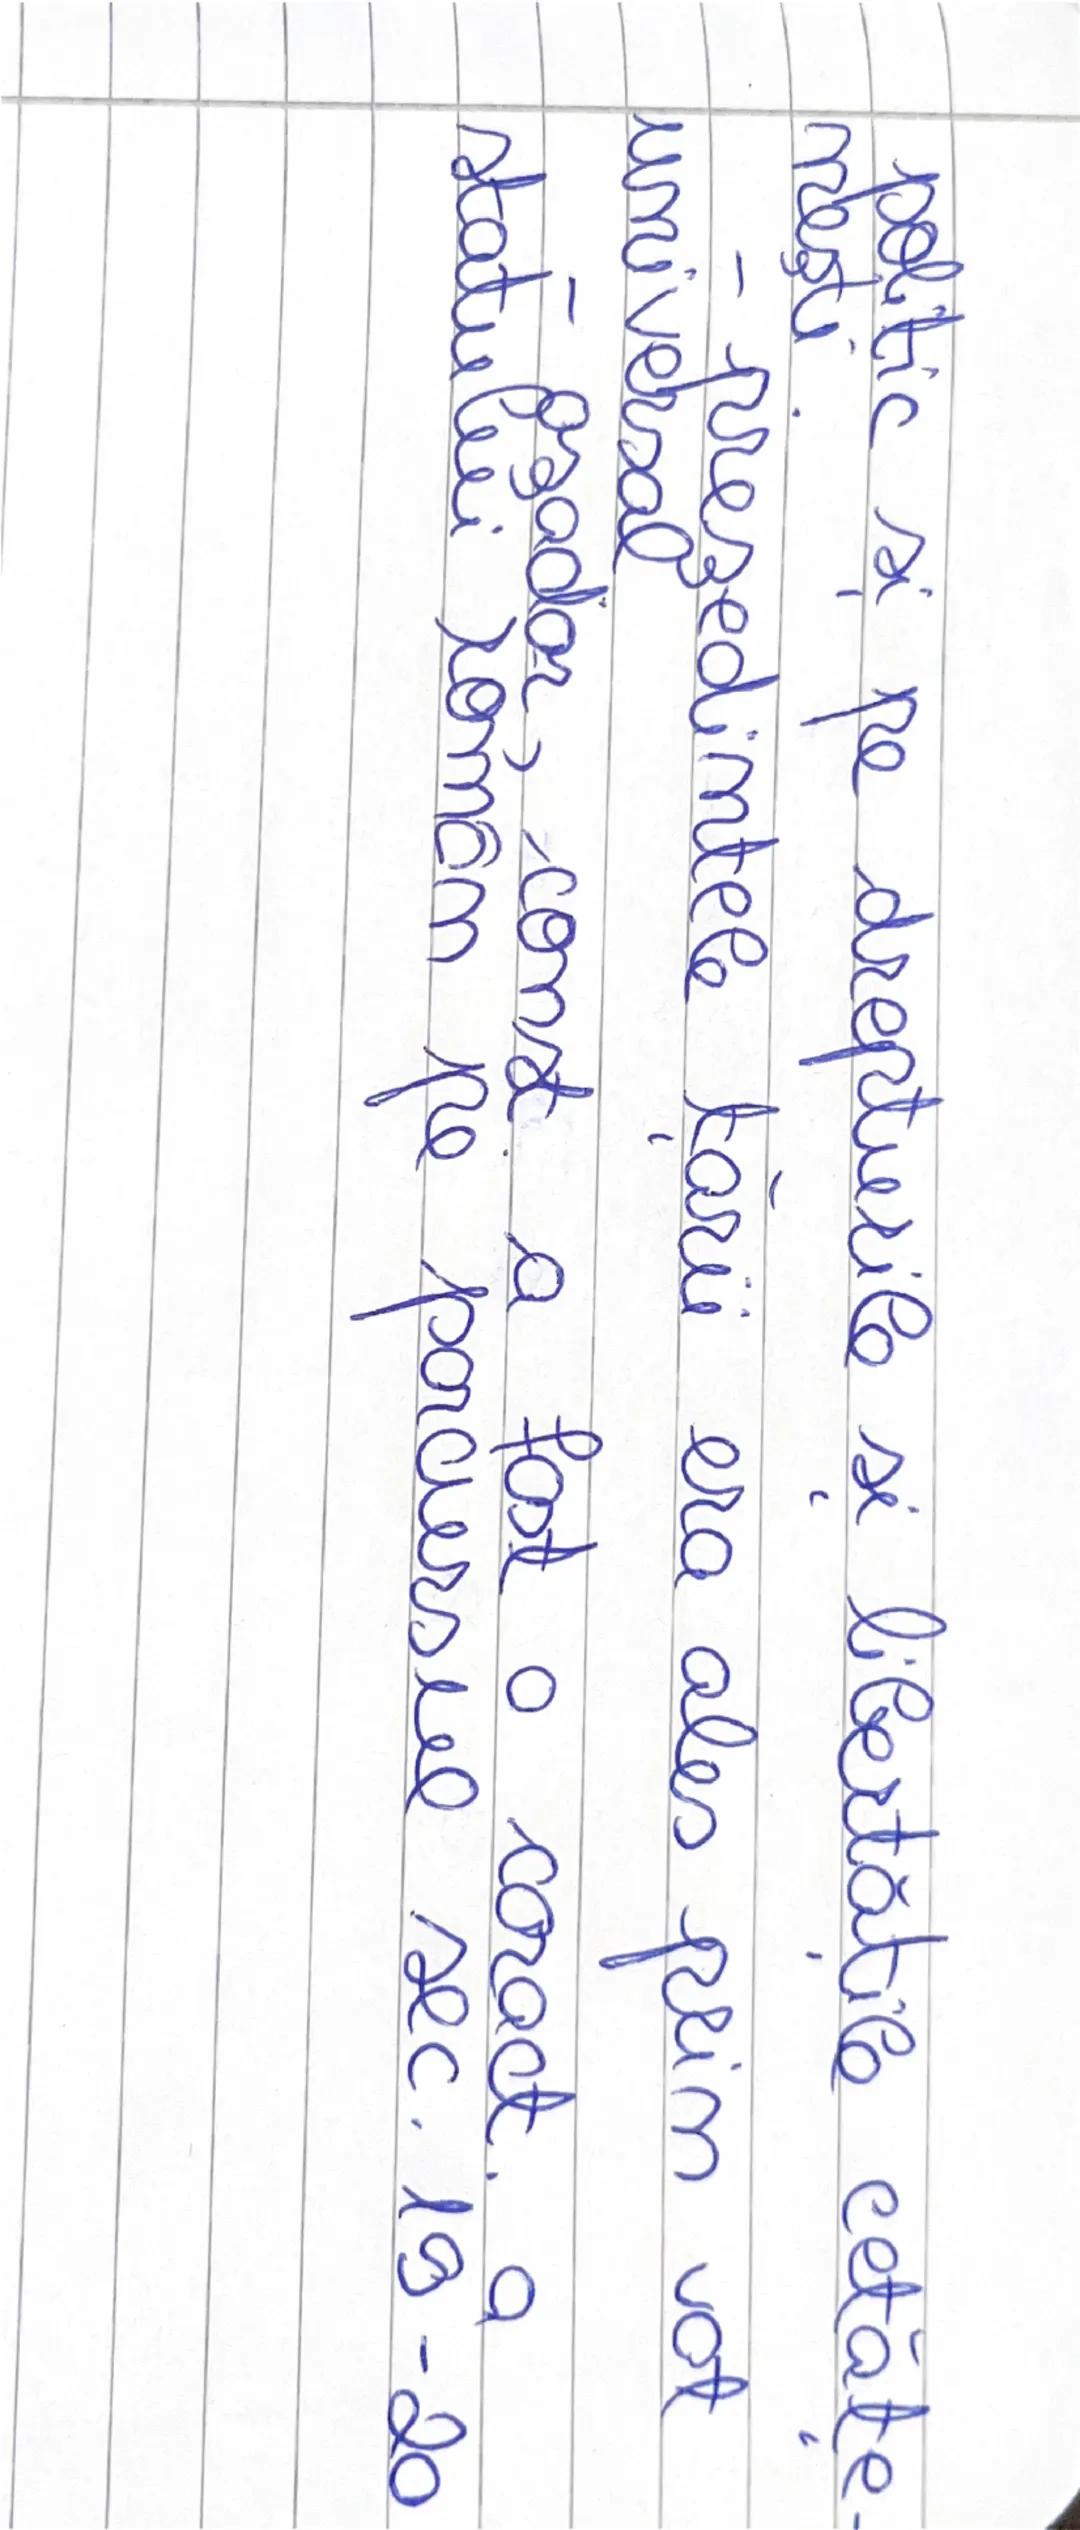 politic și pe drepturile și libertățile cetățe-
nești.
- prezedintele țării era ales prin vot
universal
- așadar, const. a fost o caract. a
statului român pe parcursul sec. 19-20